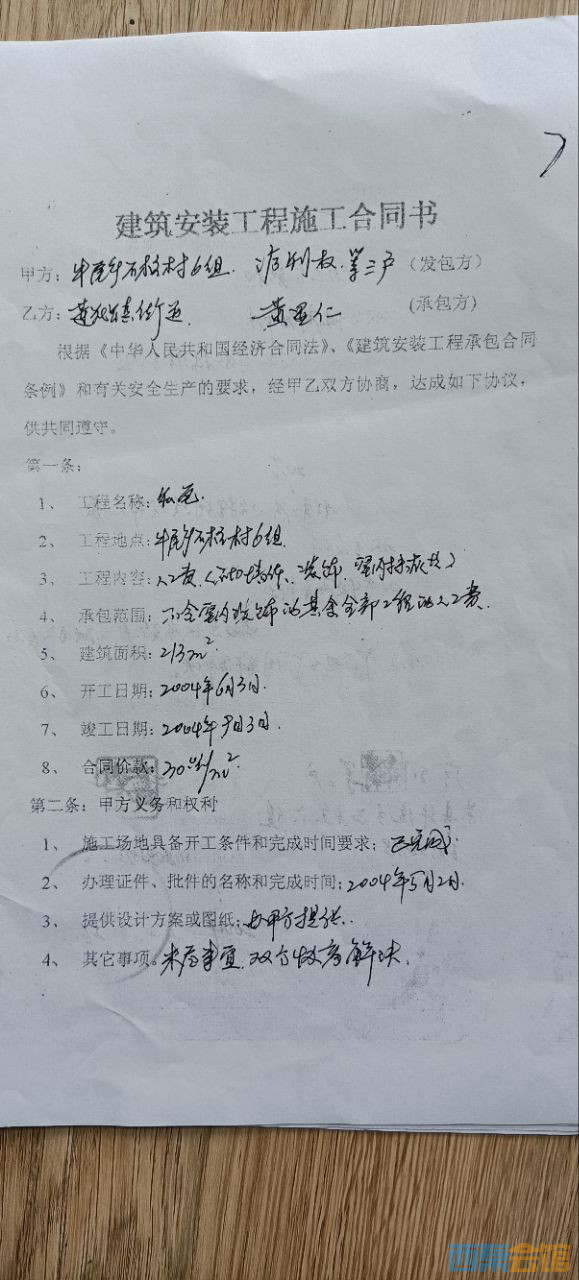 建筑安装工程施工合同书
甲方：村6组. （发包方）
乙方： 黄 仁 （承包方）
根据《中华人民共和国经济合同法》、《建筑安装工程承包合同
条例》和有关安全生产的要求，经甲乙双方协商，达成如下协议，
供共同遵守。
第一条：
1、 工程名称：
2、 工程地点：村6组.
3、 工程内容：人工费
4、 承包范围：不含室内装饰的其余全部工程的人工费.
5、 建筑面积：213m²
6、 开工日期：2004年6月3日.
7、 竣工日期：2004年 月3日.
8、 合同价款：/m²
第二条：甲方义务和权利
1、 施工场地具备开工条件和完成时间要求：已完成
2、 办理证件、批件的名称和完成时间：2004年5月2日.
3、 提供设计方案或图纸：由甲方提供.
4、 其它事项。未尽事宜.双方协商解决.
西泉会馆